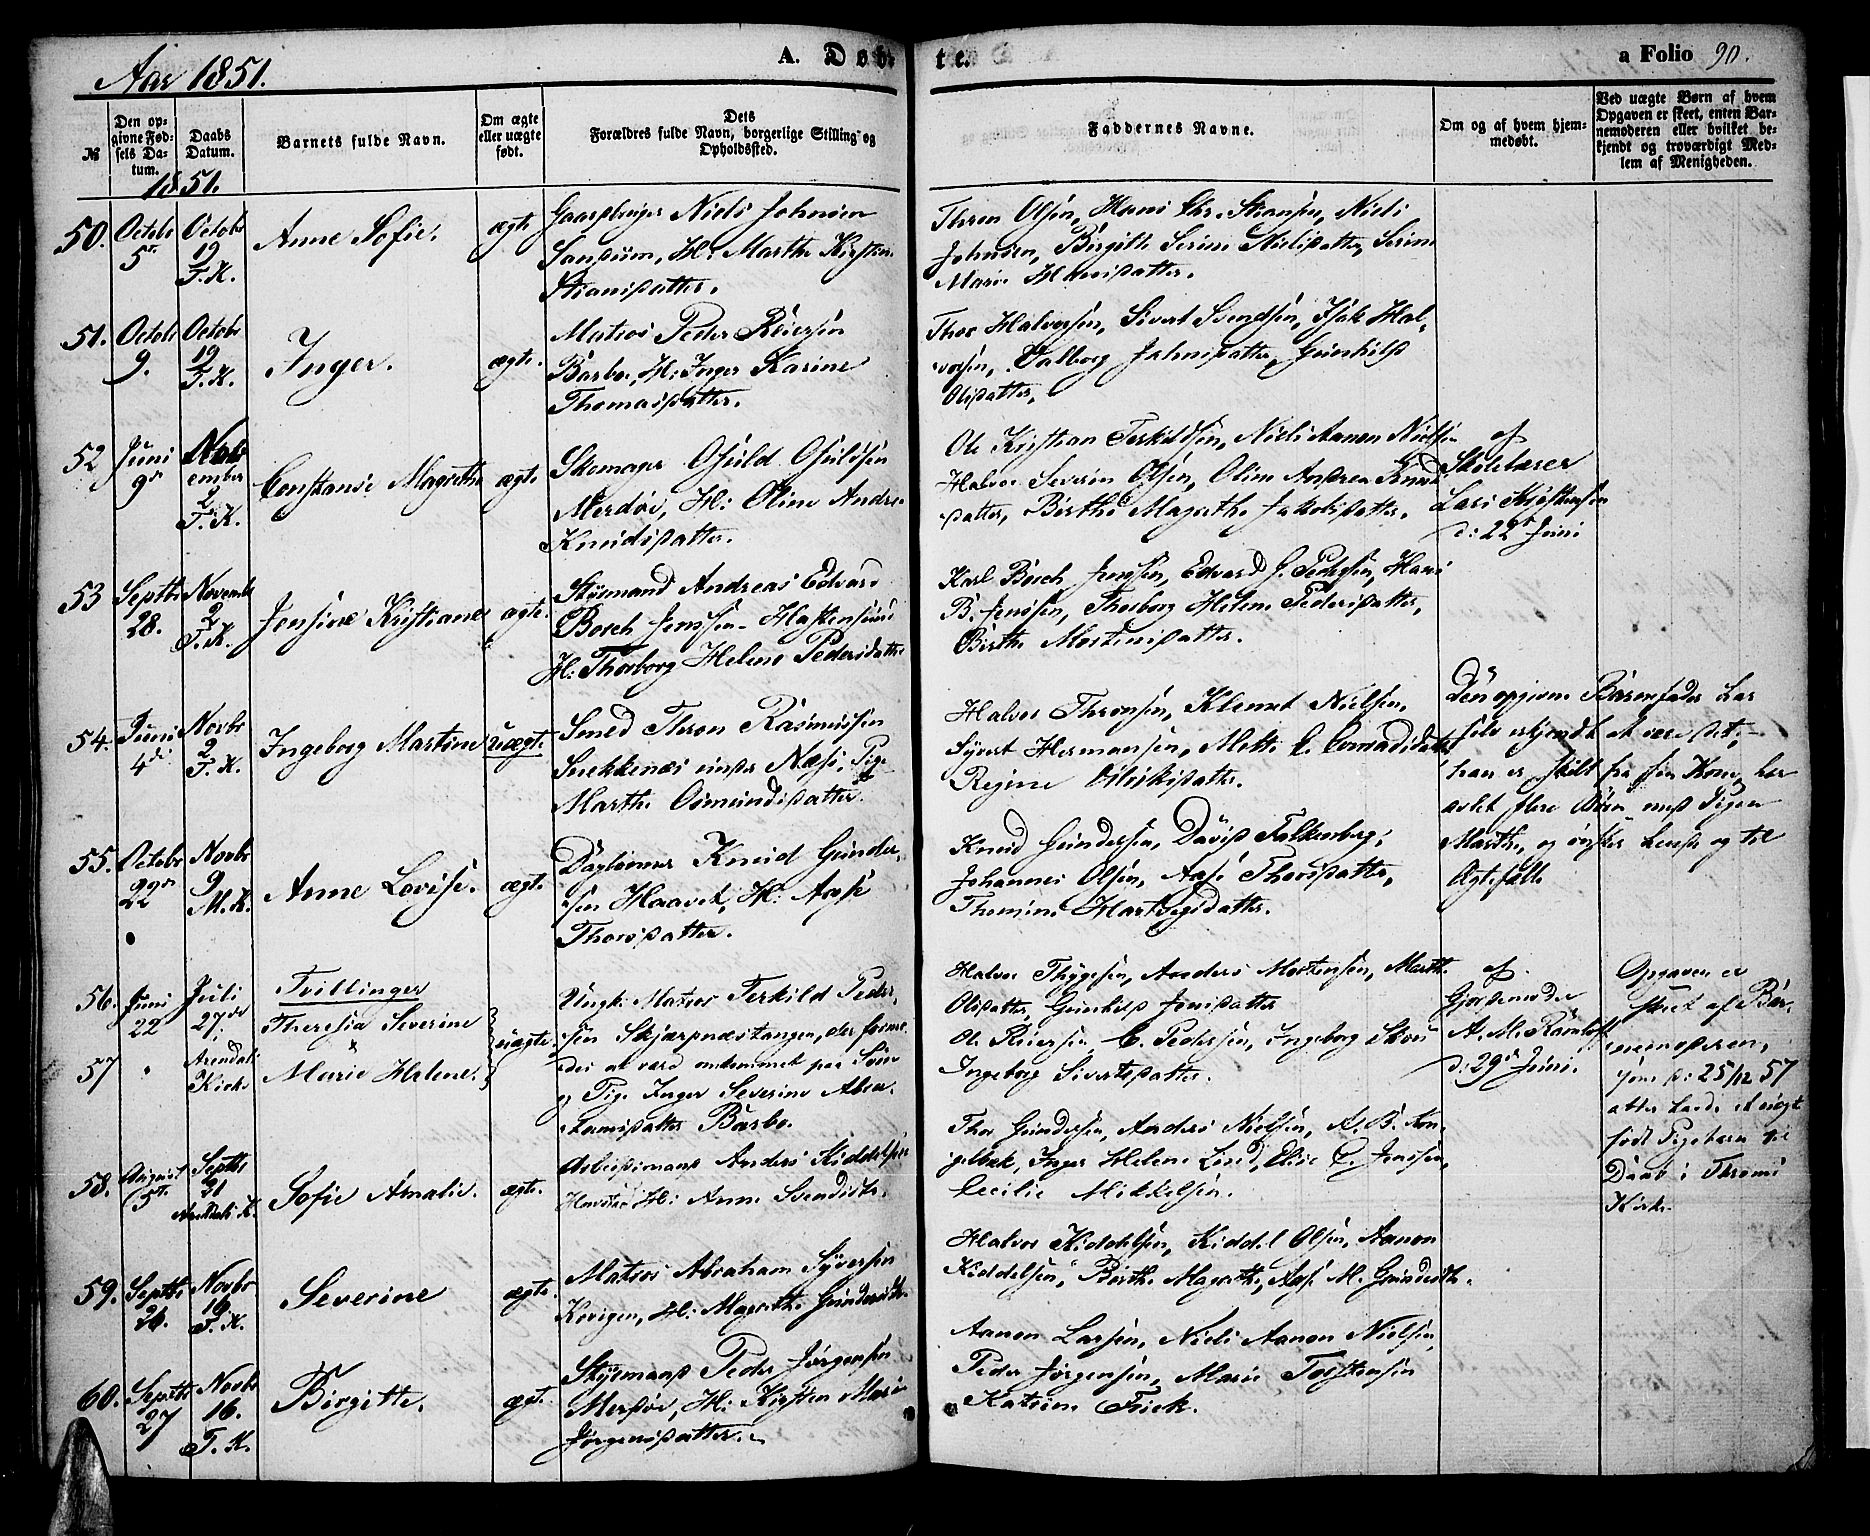 Aar 1851.
A. Døb-
te.
a Folio 90.
№
Den op-
givne Fød-
sels Da-
tum.
Daabs
Datum.
Barnets fulde Navn.
Om ægte
eller uægte
født.
Dets
Forældres fulde Navn, borgerlige Stilling og
Opholdssted.
Faddernes Navne.
Om og af hvem hjem-
medøbt.
Ved uægte Børn af hvem
Opgaven er skeet, enten Bar-
nemoderen eller hvilket be-
kjendt og troværdigt Med-
lem af Menigheden.
1851.
50.
Octob
5te
Octobr
19
T.K.
Anne Sofie.
ægte
Gaardbruger Niels Johnsen
Sandum, H: Marthe Kirstine
Stiansdatter.
Thron Olsen, Hans Chr. Stiansen, Niels
Johnsen, Birgitte Serine Nielsdatter, Serine
Marie Hansdatter.
51.
Octob
9.
Octobr
19
T.K.
Inger.
ægte.
Matros Peder Reiersen
Barbo, H: Inger Karine
Thomasdatter.
Thor Halvorsen, Sivert Svendsen, Isak Hal-
vorsen, Valborg Johnsdatter, Gunhild
Olsdatter,
52
Juni
9de
Nov
ember
2
T.K.
Constanse Magrethe
ægte.
Skomager Osuld Osuldsen
Merdø, H: Oline Andrea
Knudsdatter.
Ole Kristian Terkildsen, Niels Aanon Nielsen
Halvor Severin Olsen, Oline Andrea Knuds
datter, Birthe Magrethe Jakobsdatter.
af
Skolelærer
Lars Kristensen
d: 22de Juni
53
Septbr
28.
November
2
T.K.
Jensine Kristiane
ægte.
Styrmand Andreas Edvard
Bosch Jenssen Hastensund
H: Thorborg Helene Pedersdatter
Karl Bosch Jenssen, Edvard J. Pedersen, Hans
B. Jenssen, Thorborg Helene Pedersdatter,
Birthe Mortensdatter.
54.
Juni
4de
Novbr
2
T.K.
Ingeborg Martine
uægte.
Smed Thron Rasmussen
Snekkenes under Næs, Pige
Marthe Osmundsdatter.
Halvor Thronsen, Klemet Nielsen,
Syvert Hermansen, Mette C. Conradsdatter
Regine Didriksdatter.
Den opgivne Barnefader har
selv erkjendt at være det;
han er skilt fra sin Kone, har
avlet flere Børn med Pigen
Marthe, og ønsker hende og til
Ægtefælle
55.
Octobr
22de
Novbr
9
M.K.
Anne Lovise.
ægte.
Daglønner Knud Gunder-
sen Haavet, H: Aase
Thorsdatter.
Knud Gundersen, David Falkenberg,
Johannes Olsen, Aase Thorsdatter,
Thomine Hartvigsdatter.
56.
Juni
22
Juli
27de
Tvillinger
Theresia Severine
&
57
"
Arendals
Kirke
Marie Helene.
uægte.
Ungk: Matros Terkild Peder-
sen Skjærpnæstangen, der forme
des at være omkommet paa Søen
og Pige Inger Severine Abra-
hamsdatter Barbo.
Halvor Thygesen, Anders Mortensen, Marthe
Olsdatter, Gunhild Jensdatter
O. Reiersen C. Pedersen, Ingeborg Skou
Ingeborg Sivertsdatter.
af
Gjordemoder
A. M. Ramloff
d: 29de Juni.
Opgaven er
skeet af Bar-
nemoderen,
som d: 25/12 57
atter havde et uægt
født Pigebarn til
Daab i Thromø
Kirke
58.
August
5te
Septbr
21
Arendals K.
Sofie Amalie.
ægte.
Arbeidsmand Anders Kiddelsen
Havstad H: Anne Svendsdtr.
Thor Gundersen, Anders Nielsen, A. B. Kon-
gelbæk, Inger Helene Lind, Elise C. Jenssen,
Cecilie Mikkelsen.
59.
Septbr
26.
Novbr
16
T.K.
Severine
ægte.
Matros Abraham Syversen
Kovigen, H: Magrethe Gundersdtr.
Halvor Kiddelsen, Kiddel Olsen, Aanon
Kiddelsen, Birthe Magrethe, Aase M. Gundersdtr.
60.
Septbr
27
Novbr
16.
T.K.
Birgitte.
ægte.
Styrmand Peder Jørgensen
Merdø, H: Kirsten Marie
Jørgensdatter.
Aanon Larsen, Niels Aanon Nielsen,
Peder Jørgensen, Marie Torstensen
Katrine Frick.